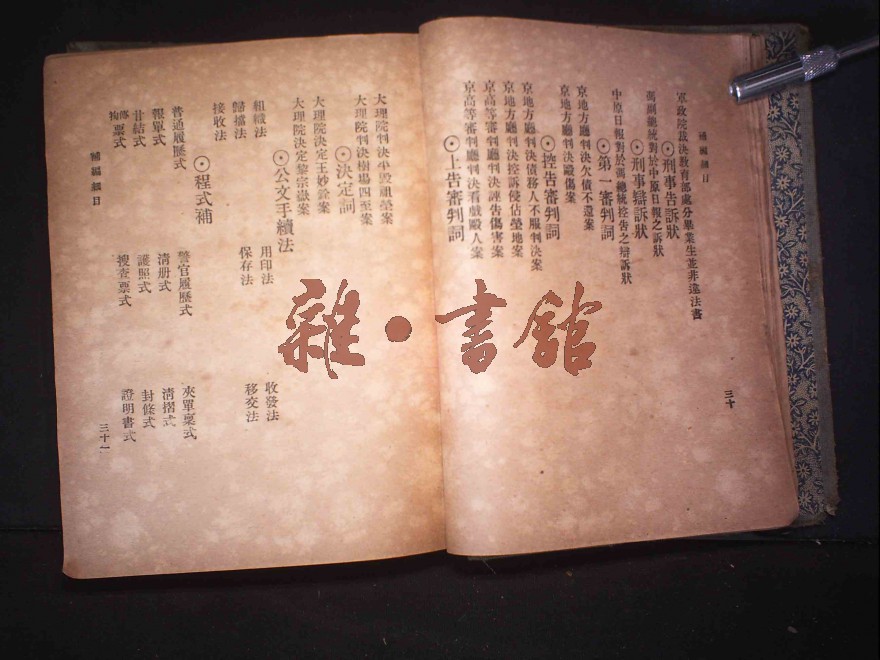 補編細目
軍政院裁決教育部處分畢業生並非違法書
⊙刑事告訴狀
馮副總統對於中原日報之訴狀
⊙刑事辯訴狀
中原日報對於馮總統控告之辯訴狀
⊙第一審判詞
京地方廳判決欠債不還案
京地方廳判決毆傷案
⊙控告審判詞
京地方廳判決債務人不服判決案
京地方廳判決控訴侵佔塋地案
京高等審判廳判決誣告傷害案
京高等審判廳判決看戲毆人案
⊙上告審判詞
三十
大理院判決平毀祖塋案
大理院判決樹場四至案
⊙決定詞
大理院決定王妙銓案
大理院決定黎宗嶽案
⊙公文手續法
組織法 用印法 收發法
歸擋法 保存法 移交法
接收法
⊙程式補
普通履歷式 警官履歷式 夾單稟式
報單式 清册式 清摺式
甘結式 護照式 封條式
票式 搜查票式 證明書式
補編細目
三十一
雜·書館